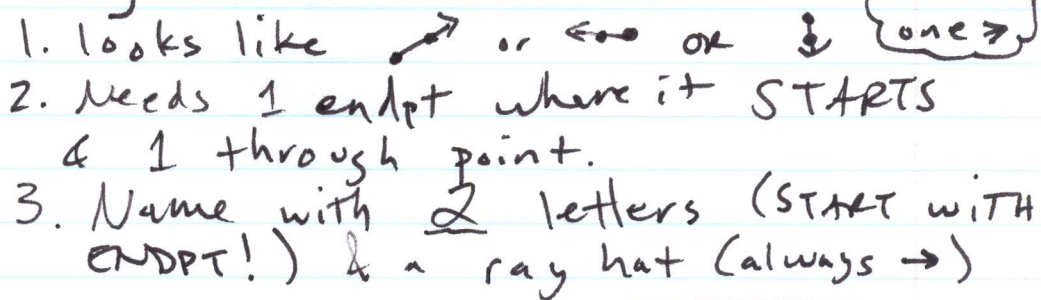 1. looks like or or one →
2. Needs 1 endpt where it STARTS
& 1 through point.
3. Name with 2 letters (START WITH
ENDPT!) & a ray hat (always →)